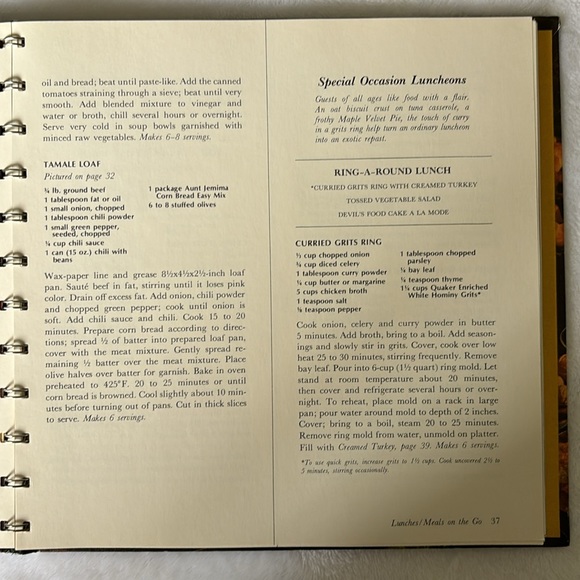 oil and bread; beat until paste-like. Add the canned
tomatoes straining through a sieve; beat until very
smooth. Add blended mixture to vinegar and
water or broth, chill several hours or overnight.
Serve very cold in soup bowls garnished with
minced raw vegetables. Makes 6–8 servings.
TAMALE LOAF
Pictured on page 32
¾ lb. ground beef
1 tablespoon fat or oil
1 small onion, chopped
1 tablespoon chili powder
1 small green pepper,
seeded, chopped
¼ cup chili sauce
1 can (15 oz.) chili with
beans
1 package Aunt Jemima
Corn Bread Easy Mix
6 to 8 stuffed olives
Wax-paper line and grease 8½x4½x2½-inch loaf
pan. Sauté beef in fat, stirring until it loses pink
color. Drain off excess fat. Add onion, chili powder
and chopped green pepper; cook until onion is
soft. Add chili sauce and chili. Cook 15 to 20
minutes. Prepare corn bread according to direc-
tions; spread ½ of batter into prepared loaf pan,
cover with the meat mixture. Gently spread re-
maining ½ batter over the meat mixture. Place
olive halves over batter for garnish. Bake in oven
preheated to 425°F. 20 to 25 minutes or until
corn bread is browned. Cool slightly about 10 min-
utes before turning out of pans. Cut in thick slices
to serve. Makes 6 servings.
Special Occasion Luncheons
Guests of all ages like food with a flair.
An oat biscuit crust on tuna casserole, a
frothy Maple Velvet Pie, the touch of curry
in a grits ring help turn an ordinary luncheon
into an exotic repast.
RING–A–ROUND LUNCH
*CURRIED GRITS RING WITH CREAMED TURKEY
TOSSED VEGETABLE SALAD
DEVIL'S FOOD CAKE A LA MODE
CURRIED GRITS RING
½ cup chopped onion
cup diced celery
1 tablespoon curry powder
¼ cup butter or margarine
5 cups chicken broth
1 teaspoon salt
teaspoon pepper
1 tablespoon chopped
parsley
bay leaf
teaspoon thyme
1¼ cups Quaker Enriched
White Hominy Grits*
Cook onion, celery and curry powder in butter
5 minutes. Add broth, bring to a boil. Add season-
ings and slowly stir in grits. Cover, cook over low
heat 25 to 30 minutes, stirring frequently. Remove
bay leaf. Pour into 6-cup (1½ quart) ring mold. Let
stand at room temperature about 20 minutes,
then cover and refrigerate several hours or over-
night. To reheat, place mold on a rack in large
pan; pour water around mold to depth of 2 inches.
Cover; bring to a boil, steam 20 to 25 minutes.
Remove ring mold from water, unmold on platter.
Fill with Creamed Turkey, page 39. Makes 6 servings.
*To use quick grits, increase grits to 1½ cups. Cook uncovered 2½ to
5 minutes, stirring occasionally.
Lunches/Meals on the Go 37